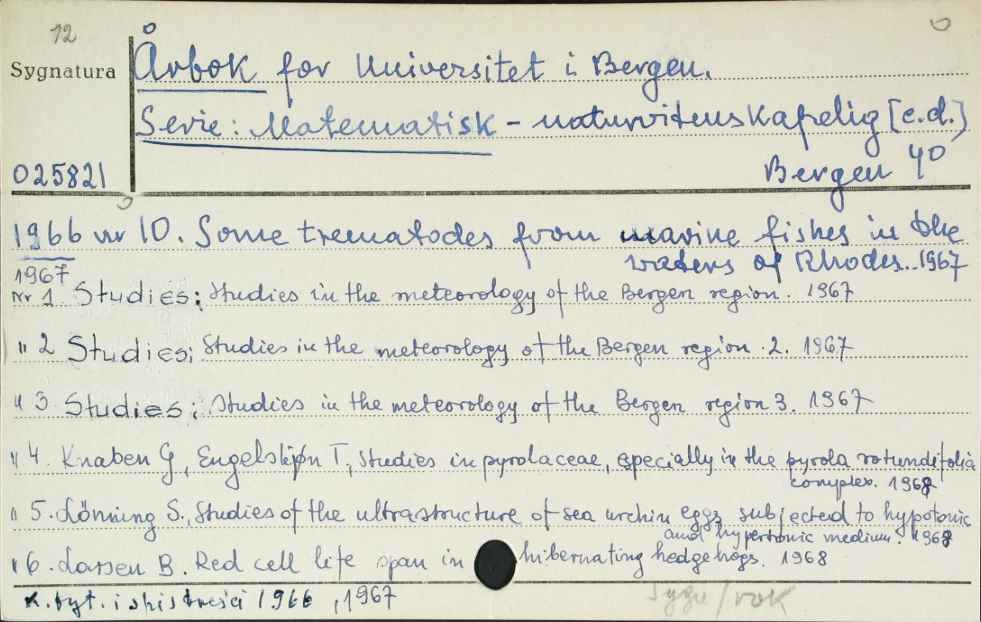 12
Sygnatura Årbok for Universitet i Bergen.
Serie: Matematisk - naturvitenskapelig [c.d.]
025821 Bergen 40
1966 nr 10. Some trematodes from marine fishes in the
waters of Rhodes. 1967
1967
Nr 1 Studies; Studies in the meteorology of the Bergen region. 1967
" 2 Studies; Studies in the meteorology of the Bergen region. 2. 1967
" 3 Studies; Studies in the meteorology of the Bergen region 3. 1967
" 4. Knaben G, Engelskjøn T, Studies in pyrolaceae, especially in the pyrola rotundifolia
complex. 1968
" 5. Lönning S., Studies of the ultrastructure of sea urchin eggs subjected to hypotonic
and hypertonic medium. 1968
" 6. Larsen B. Red cell life span in hibernating hedgehogs. 1968
K. tyt. i spis treści 1966, 1967